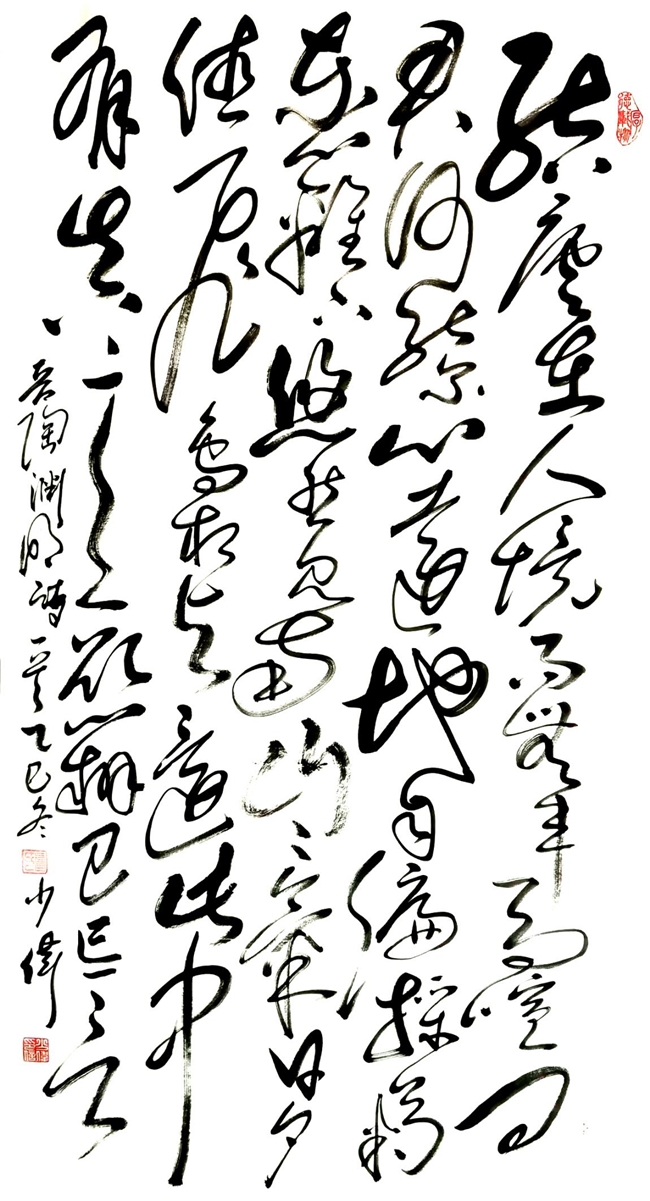 結廬在人境而無車馬喧問
君何能爾心遠地自偏採菊
東籬下悠然見南山〻氣日夕
佳飛鳥相與還此中
有真意欲辨已忘言
晉陶淵明詩一首乙巳冬少偉